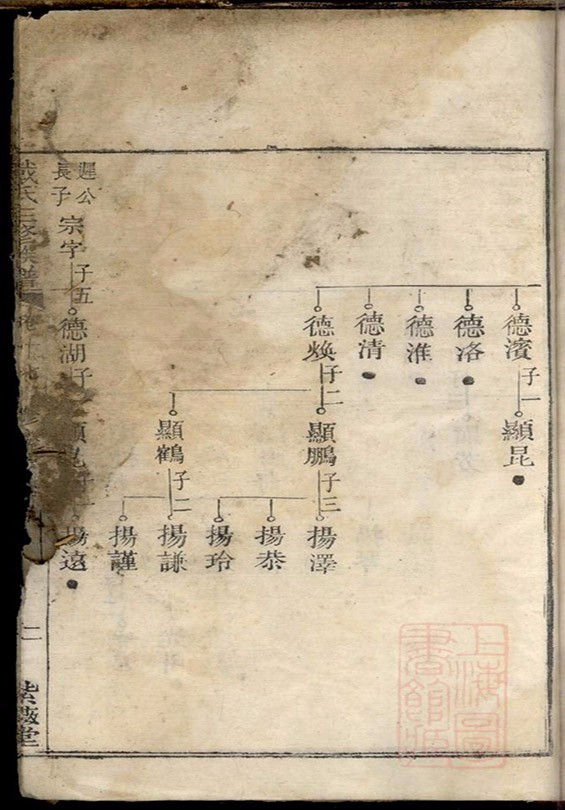 德濱
子一
顯昆
德洛
德淮
德清
德煥
子二
顯鵬
子三
揚澤
揚恭
揚玲
顯鶴
子二
揚謙
揚謹
遲公
長子
宗字
子五
德湖
子
揚遠
戴氏
族譜
卷十
二
紫薇堂
上海圖
書館藏